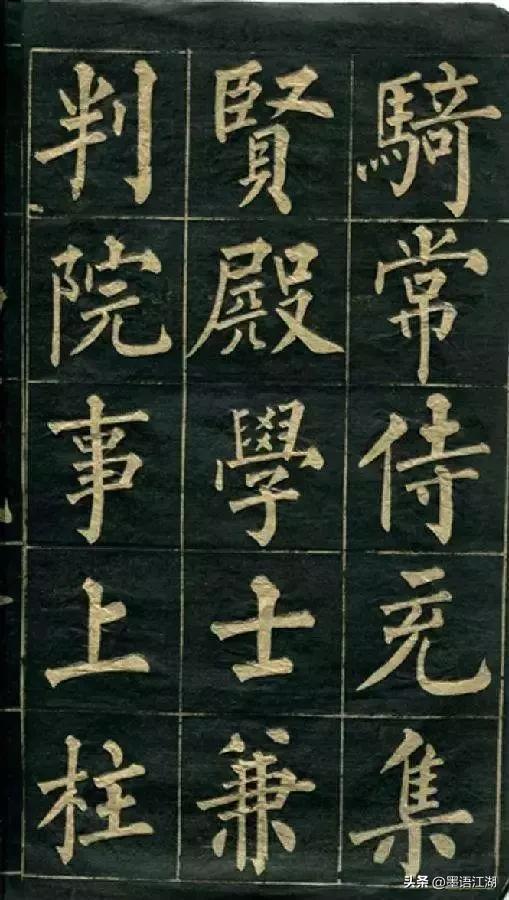 騎常侍充集
賢殿學士兼
判院事上柱
头条 @墨语江湖